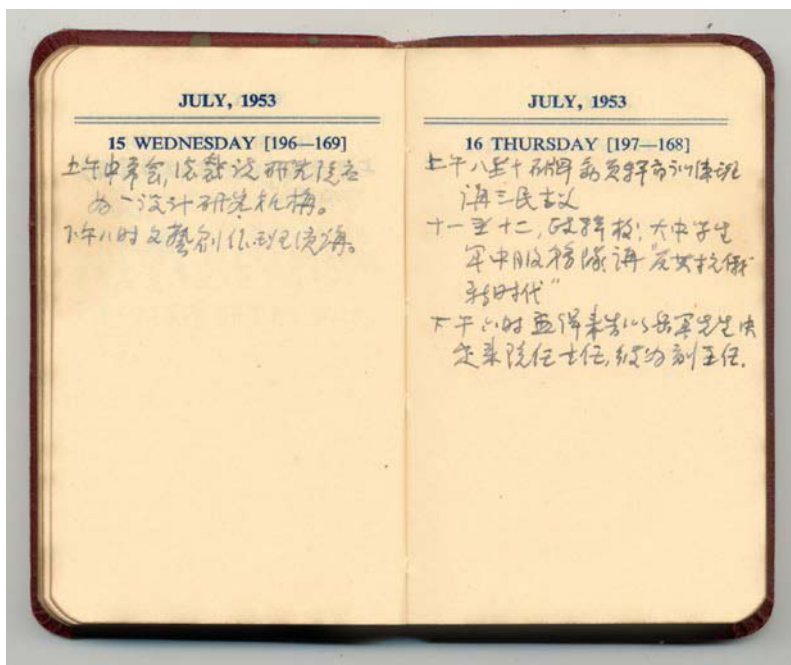 JULY, 1953
15 WEDNESDAY [196—169]
上午中常会, 总裁说研究院应
为一设计研究机构。
下午八时文藝创作班演講。
JULY, 1953
16 THURSDAY [197—168]
上午八至十石牌
講三民主义
十一至十二, 政幹校; 大中学生
军中服務隊講“反共抗俄
新时代”
下午六时 来告以岳军先生决
定来院任主任, 彼为副主任.